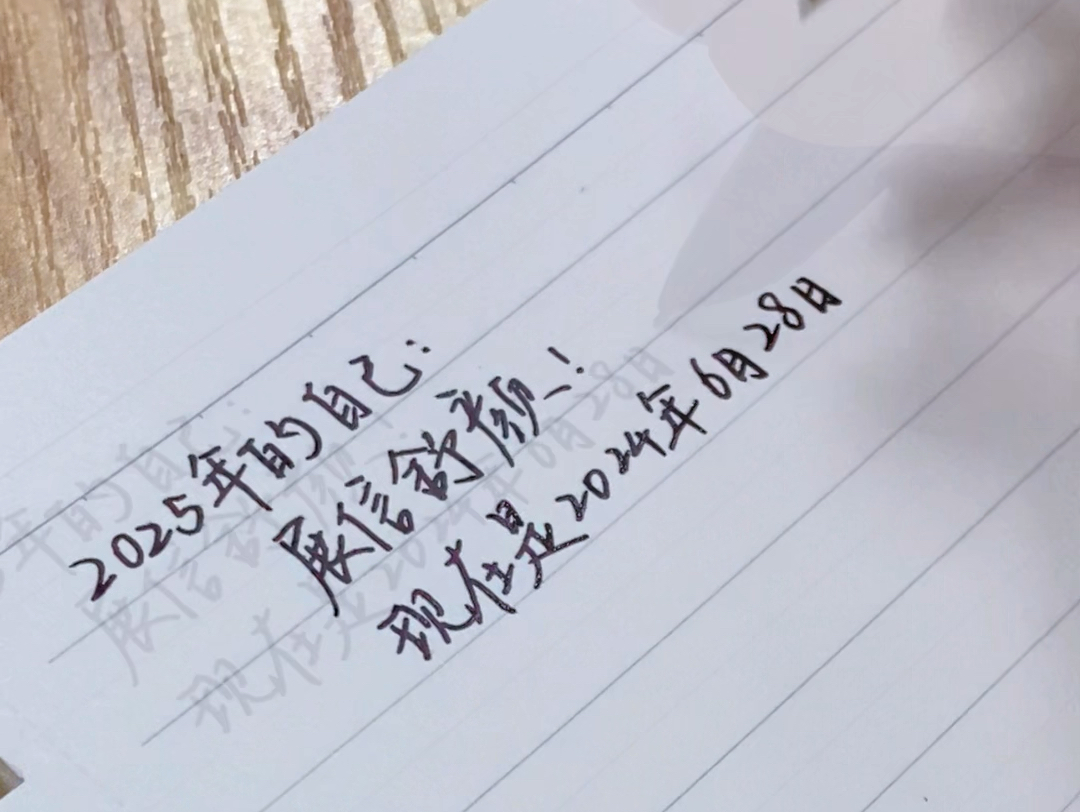 2025年的自己:
展信舒颜!
现在是2024年6月28日